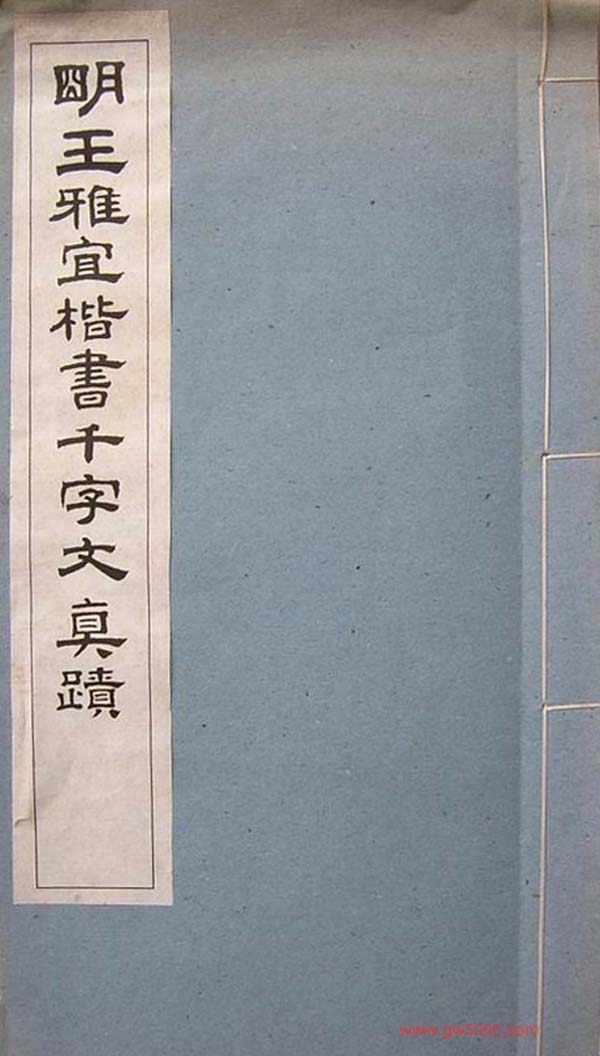 明王雅宜楷書千字文真蹟
www.gw5000.com